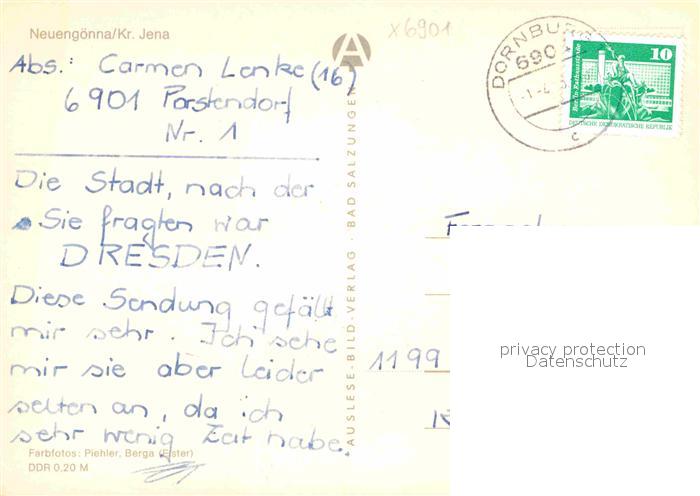 Neuengönna/Kr. Jena
x6901
Abs.: Carmen Lenke (16)
6901 Porstendorf
Nr. 1
Die Stadt, nach der
Sie fragten war
DRESDEN.
Diese Sendung gefällt
mir sehr. Ich sehe
mir sie aber leider
selten an, da ich
sehr wenig Zeit habe.
Farbfotos: Piehler, Berga (Elster)
DDR 0,20 M
AUSLESE-BILD-VERLAG · BAD SALZUNGEN
A
DORNBURG
690
c
10
DEUTSCHE DEMOKRATISCHE REPUBLIK
1199
privacy protection
Datenschutz